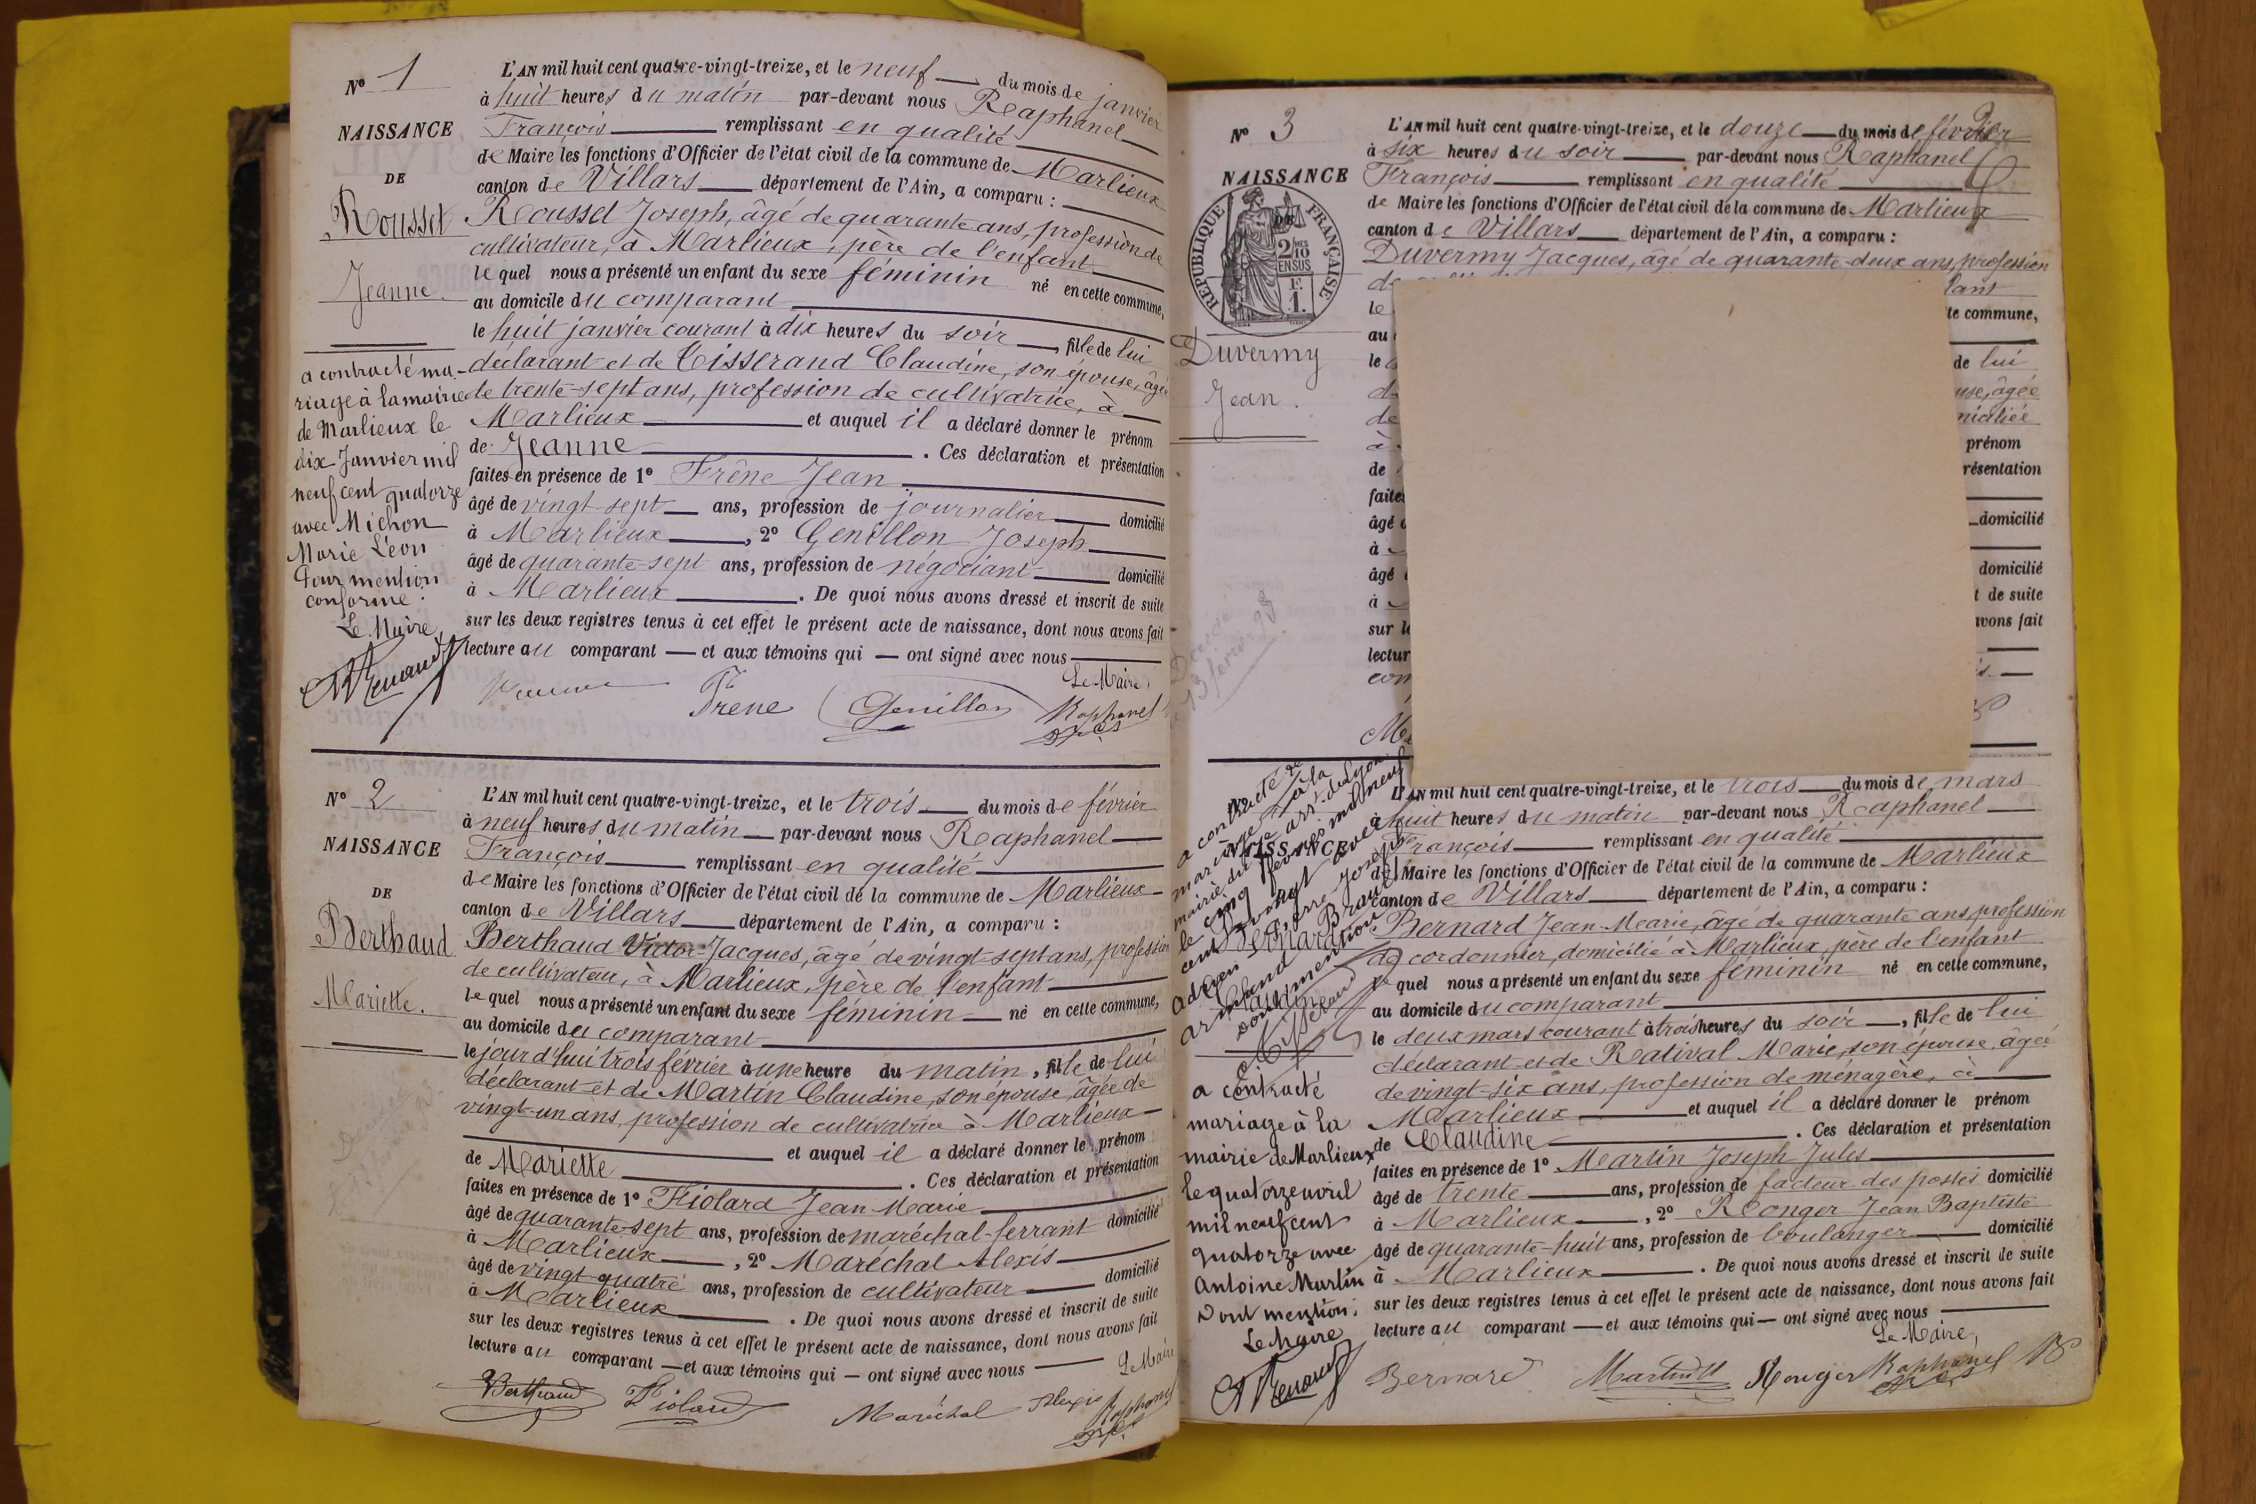 N° 1
NAISSANCE
DE
Rousset
Jeanne
a contracté ma-
riage à la mairie
de Marlieux le
dix Janvier mil
neuf cent quatorze
avec Michon
Marie Léon
Pour mention
conforme.
Le Maire,
L'AN mil huit cent quatre-vingt-treize, et le neuf du mois de janvier
à huit heures du matin par-devant nous Raphanel
François remplissant en qualité
de Maire les fonctions d'Officier de l'état civil de la commune de Marlieux
canton de Villars département de l'Ain, a comparu :
Rousset Joseph, âgé de quarante ans, profession de
cultivateur, à Marlieux, père de l'enfant
lequel nous a présenté un enfant du sexe féminin né en cette commune,
au domicile du comparant
le huit janvier courant à dix heures du soir, fille de lui
déclarant et de Tisserand Claudine, son épouse, âgée
de trente-sept ans, profession de cultivatrice, à
Marlieux et auquel il a déclaré donner le prénom
de Jeanne. Ces déclaration et présentation
faites en présence de 1° Frêne Jean
âgé de vingt-sept ans, profession de journalier domicilié
à Marlieux, 2° Genillon Joseph
âgé de quarante-sept ans, profession de négociant domicilié
à Marlieux. De quoi nous avons dressé et inscrit de suite
sur les deux registres tenus à cet effet le présent acte de naissance, dont nous avons fait
lecture au comparant et aux témoins qui ont signé avec nous
Le Maire,
Frene Genillon Raphanel
N° 2
NAISSANCE
DE
Berthaud
Mariette.
L'AN mil huit cent quatre-vingt-treize, et le trois du mois de février
à neuf heures du matin par-devant nous Raphanel
François remplissant en qualité
de Maire les fonctions d'Officier de l'état civil de la commune de Marlieux
canton de Villars département de l'Ain, a comparu :
Berthaud Victor Jacques, âgé de vingt-sept ans, profession
de cultivateur, à Marlieux, père de l'enfant
lequel nous a présenté un enfant du sexe féminin né en cette commune,
au domicile du comparant
le jour d'hui trois février à une heure du matin, fille de lui
déclarant et de Martin Claudine, son épouse, âgée de
vingt-un ans, profession de cultivatrice à Marlieux
et auquel il a déclaré donner le prénom
de Mariette. Ces déclaration et présentation
faites en présence de 1° Fiolard Jean Marie
âgé de quarante-sept ans, profession de maréchal-ferrant domicilié
à Marlieux, 2° Maréchal Alexis
âgé de vingt quatre ans, profession de cultivateur domicilié
à Marlieux. De quoi nous avons dressé et inscrit de suite
sur les deux registres tenus à cet effet le présent acte de naissance, dont nous avons fait
lecture au comparant et aux témoins qui ont signé avec nous
Le Maire
Berthaud Fiolard Maréchal Alexis Raphanel
N° 3
NAISSANCE
DE
RÉPUBLIQUE FRANÇAISE
2/10
EN SUS
Duvermy
Jean.
L'AN mil huit cent quatre-vingt-treize, et le douze du mois de février
à six heures du soir par-devant nous Raphanel
François remplissant en qualité
de Maire les fonctions d'Officier de l'état civil de la commune de Marlieux
canton de Villars département de l'Ain, a comparu :
Duvermy Jacques, âgé de quarante-deux ans, profession
te commune,
de lui
âgée
prénom
résentation
domicilié
domicilié
t de suite
avons fait
NAISSANCE
a contracté
mariage à la
mairie de Marlieux
le quatorze avril
mil neuf cent
quatorze avec
Antoine Martin
Dont mention.
Le Maire
L'AN mil huit cent quatre-vingt-treize, et le trois du mois de mars
à huit heures du matin par-devant nous Raphanel
François remplissant en qualité
de Maire les fonctions d'Officier de l'état civil de la commune de Marlieux
canton de Villars département de l'Ain, a comparu :
Bernard Jean-Marie, âgé de quarante ans, profession
de cordonnier, domicilié à Marlieux, père de l'enfant
lequel nous a présenté un enfant du sexe féminin né en cette commune,
au domicile du comparant
le deux mars courant à trois heures du soir, fille de lui
déclarant et de Rativat Marie, son épouse, âgée
de vingt-six ans, profession de ménagère, à
Marlieux et auquel il a déclaré donner le prénom
de Claudine. Ces déclaration et présentation
faites en présence de 1° Martin Joseph Jules
âgé de trente ans, profession de facteur des postes domicilié
à Marlieux, 2° Ronger Jean Baptiste
âgé de quarante-huit ans, profession de boulanger domicilié
à Marlieux. De quoi nous avons dressé et inscrit de suite
sur les deux registres tenus à cet effet le présent acte de naissance, dont nous avons fait
lecture au comparant et aux témoins qui ont signé avec nous
Le Maire,
Bernard Ronger Raphanel